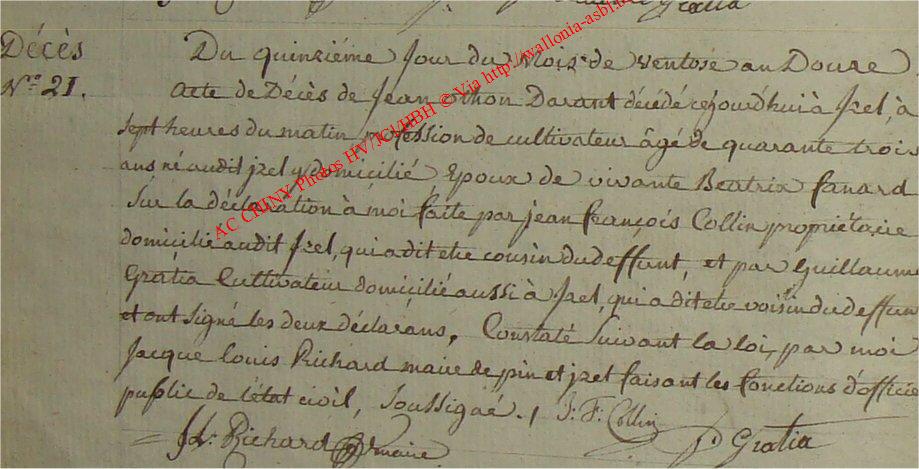 Gratia
Décès
Nro 21.
Du quinziéme Jour du Mois de Ventose an Douze
Acte de Décès de Jean othon Darant décédé cejourd'hui à Izel, à
sept heures du matin profession de cultivateur âgé de quarante trois
ans né audit jzel y domicilié Epoux de vivante Beatrix fanard
Sur la déclaration à moi faite par jean françois Collin propriétaire
domicilié audit Izel, qui a dit etre cousin du deffunt, et par Guillaume
Gratia Cultivateur domicilié aussi à Izel, qui a dit etre voisin du deffun
et ont signé les deux déclarans. Constaté Suivant la loi, par moi
Jacque louis Richard maire de pin et jzel faisant les fonctions d'officie
public de l'état civil, Soussigné. / J: F. Collin
JL: Richard maire G Gratia
AC CHINY Photos HV/JCI/HBH © Via http://wallonia-asbl